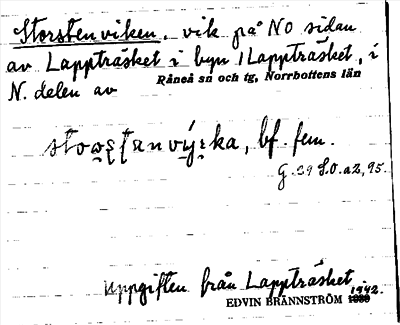 Storstenviken, vik på NO sidan
av Lappträsket i byn Lappträsket, i
Råneå sn och tg, Norrbottens län
N. delen av
bf. fem.
G. 29 S.O. a2, 95.
Uppgiften från Lappträsket
1942.
EDVIN BRÄNNSTRÖM